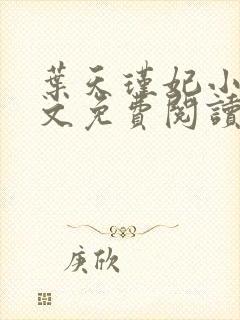 葉天瑾妃小
文免費閱讀
庚欣